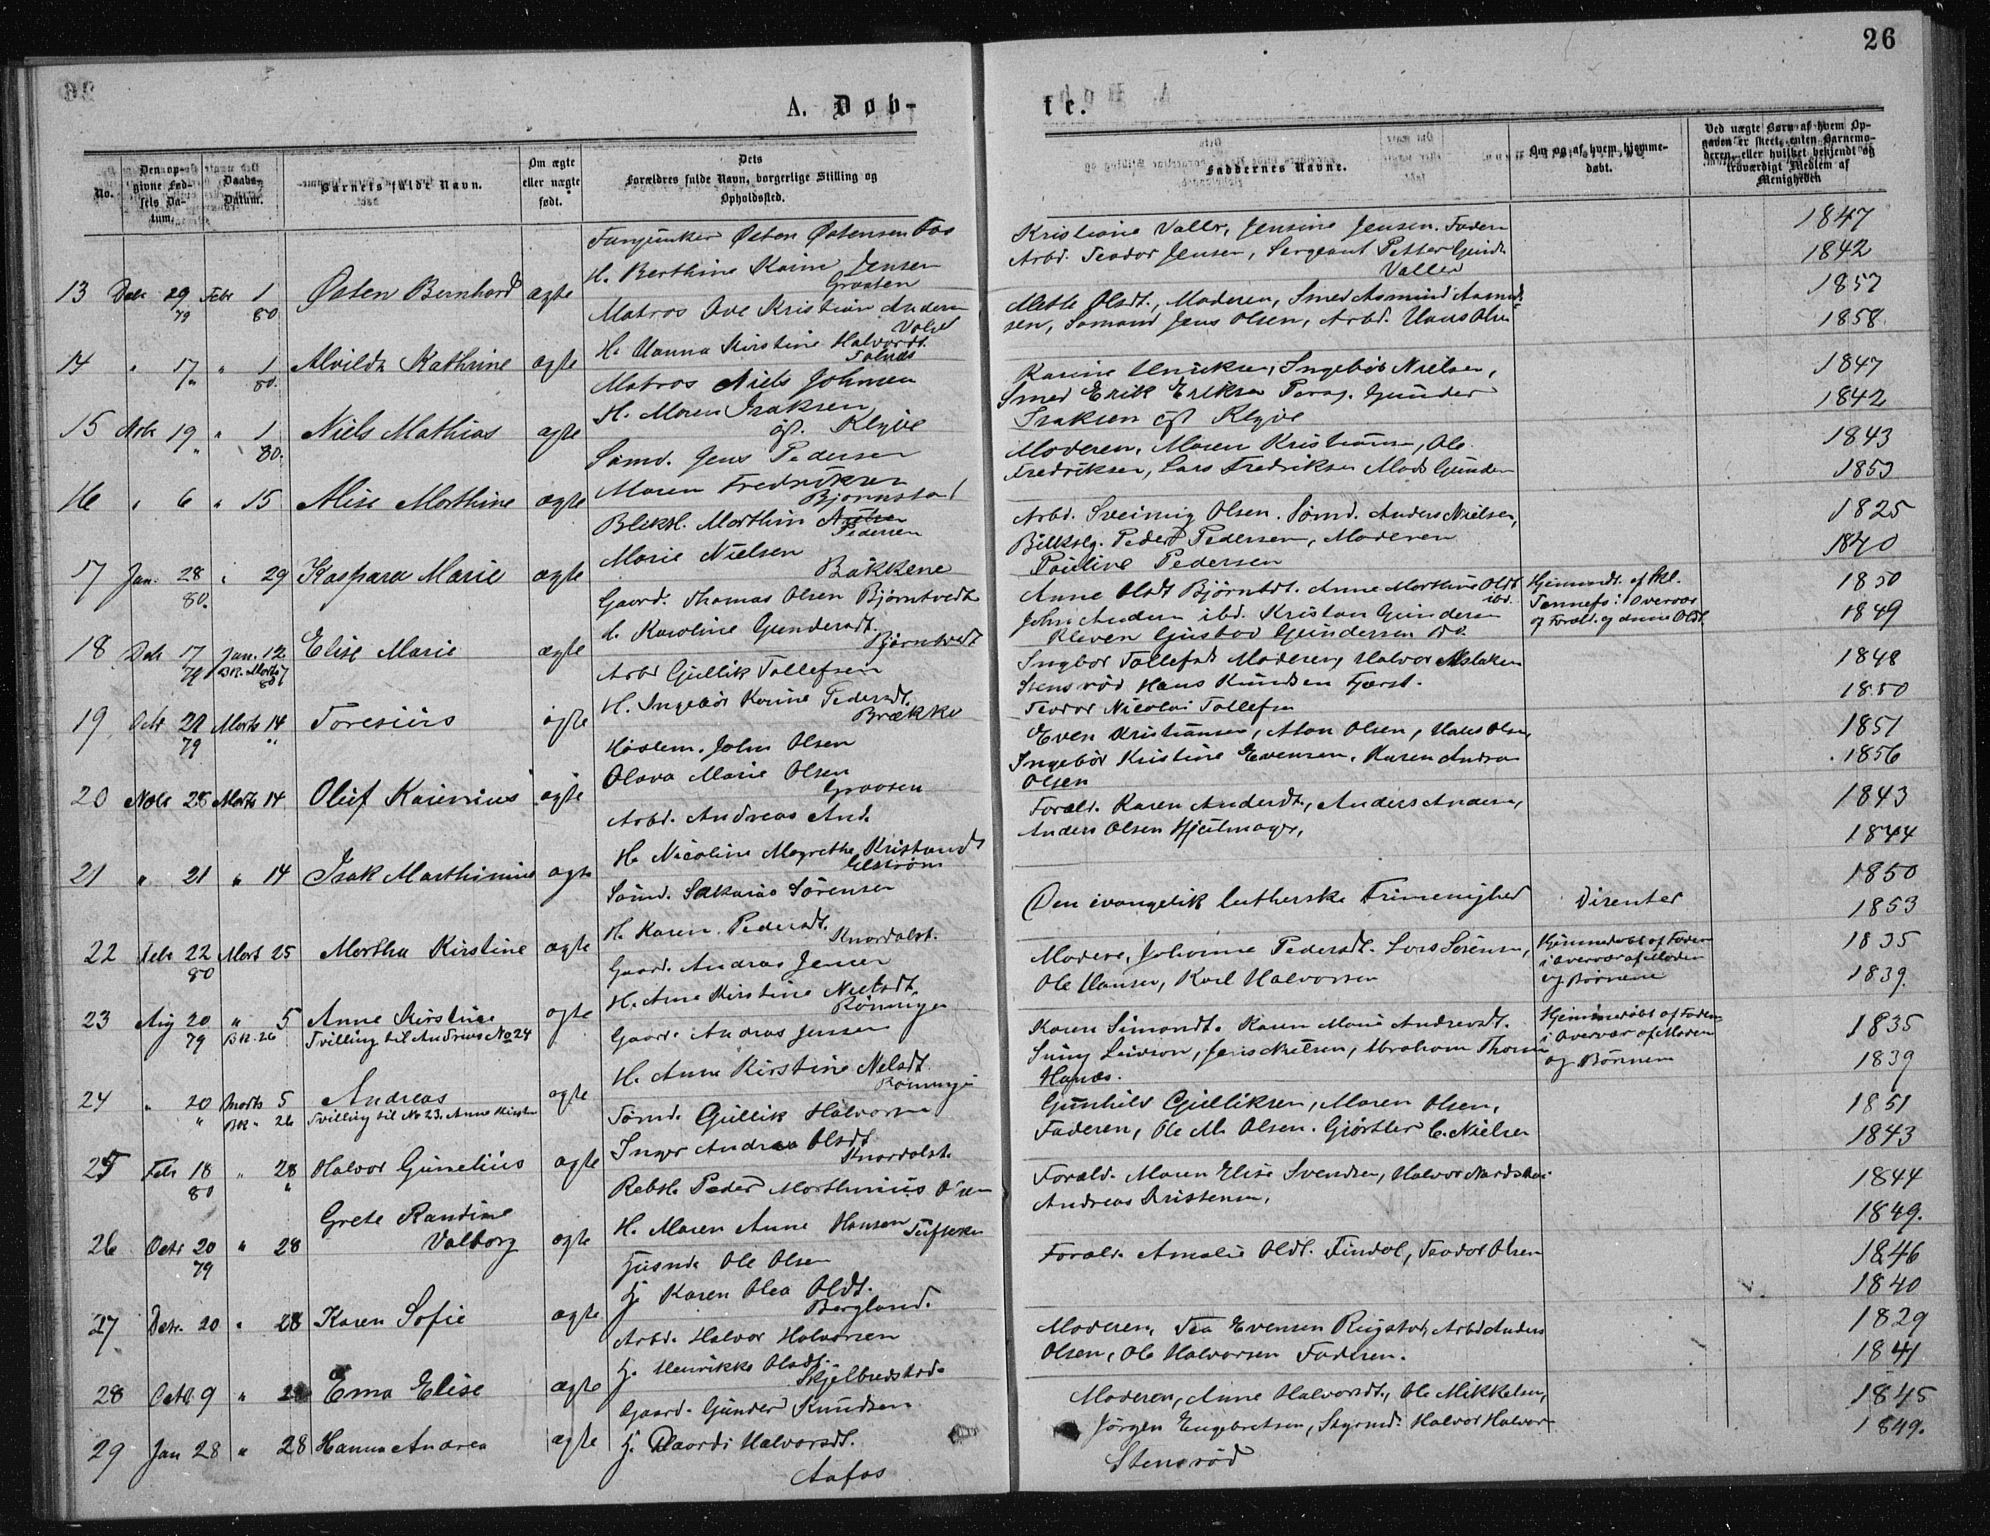 26
A. Døb-
te.
No.
Den opgivne Fødsels Datum.
Daabs-Datum.
Barnets fulde Navn.
Om ægte eller uægte født.
Dets Forældres fulde Navn, borgerlige Stilling og Opholdssted.
Faddernes Navne.
Om og af hvem hjemmedøbt.
Ved uægte Børn af hvem Opgaven er skeet, enten Barnemoderen, eller hvilket bekjendt og troværdigt Medlem af Menigheden
Østen Østensen Foss
Kristiane Valler, Jensine Jensen. Faderen
1847
H. Berthine Karine Jensen
Arbd. Teodor Jensen, Sergeant Petter Gund.
1842
Graaten
Valler
13 Deb 29 79 Febr 1 80 Østen Bernhard ægte
Matros Ove Kristian Andersen
Mette Olsdt., Moderen, Smed Asmund Asmund-
1857
Volset
sen, Sømand Jens Olsen, Arbd. Hans Olsen
1858
H. Hanna Kirstine Halvorsdt.
14 " 17 " " 1 80. Alvilda Kathrine ægte
Matros Niels Johnsen
Karine, Ingebør Nielsen,
1847
H. Maren Isaksen
Smed Erik Eriksen Porsg. Gunder
1842
øf. Klyve
Isaksen øf Klyve
15 Nvb 19 " " 1 80. Niels Mathias ægte
Sømd. Jens Pedersen
Moderen, Maren Kristiansen, Ole
1843
Maren Fredriksen
Fredriksen, Lars Fredriksen Mads Gundersen
1853
Bjørnstad
16 " 6 " 15 Alise Marthine ægte
Blikksl. Marthin Pedersen
Arbd. Sveinung Olsen. Sømd. Anders Nielsen,
1825
Marie Nielsen
Blikkslg. Peder Pedersen, Moderen
1840
Bakkene
Pauline Pedersen
17 Jan. 28 80. " 29 Kaspara Marie ægte
Gaard. Thomas Olsen Bjørntvedt
Anne Olsdt Bjørntdt. Anne Marthine Olsdt. ibd.
Hjemmedt. af Skl.
1850
H. Karoline Gundersdt.
John Andersen ibd. Kristen Gundersen
Tennefs i Overvær
1849
Bjørntvedt
Kleven Gustav Gundersen do.
af Foræld. og Anne Oldt.
18 Deb 17 79 Jan. 12 BK. Marts 7 80 Elise Marie ægte
Arbd Gullik Tollefsen
Ingebor Tollefsdt Moderen, Halvor Aslaksen
1848
H. Ingebør Karine Pedersdt.
Stensrød Hans Knudsen Fjærst.
1850
Brække
Teodor Nicolai Tollefsen
19 Octr 21 79 Marts 14 " Toresius ægte
Høslem. John Olsen
Even Kristiansen, Aton Olsen, Hans Olsen,
1851
Olava Marie Olsen
Ingebør Kristine Evensen, Karen Andrea
1856
Graaten
Olsen
20 Nvbr 25 Marts 14 Oluf Karinius ægte
Arbd. Andreas And.
Foræld. Karen Andersdt., Anders Andersen,
1843
H. Nicoline Magrethe Kristiansdt
Anders Olsen Hjulmager,
1844
Elstrøm
21 " 21 " 14 Isak Marthinius ægte
Sømd. Sakarias Sørensen
Den evangelik lutherske Frimenighed
Disenter
1850
H. Karen Pedersdt.
1853
Knardalst.
22 Febr 22 80 Mart 25 Martha Kirstine ægte
Gaard. Andreas Jensen
Modere, Johanne Pedersdt. Lars Sørensen,
Hjemmedøbt af Faderen
1835
H. Anne Kirstine Nielsdt.
Ole Hansen, Karl Halvorsen
i Overvær af Moderen
1839
Rønningen
og Børnene
23 Aug 20 79 " 5 BK. 26 Anne Kirstine ægte
Tvilling til Andreas No 24
Gaard. Andreas Jensen
Karen Simonsdt. Karen Marie Andreasdt.
Hjemmedøbt af Faderen
1835
H. Anne Kirstine Nelsdt
Jens Nielsen, Abraham Thomsen
i Overvær af Moderen
1839
Rønningen
Hanæs.
og Børnene
24 " 20 " Marts 5 BK. " 26 Andreas ægte
Tvilling til No 23. Anne Kirstine
Sømd. Gullik Halvorsen
Gunhild Gulliksen, Maren Olsen,
1851
Inger Andrea Olsdt
Faderen, Ole M. Olsen. Gjørtler C. Nielsen
1843
Knardalst.
25 Febr 18 80 " 28 " Halvor Gunelius ægte
Rebsl. Peder Marthinius Olsen
Foræld. Maren Elise Svendsen, Halvor
1844
H. Maren Anne Hansen Tufterne
Andreas Kristensen.
1849.
26 Octr 20 79 " 28 Grete Randine Valborg ægte
Husmd. Ole Olsen
Foræld. Amalie Oldt. Findal, Teodor Olsen
1846
H. Karen Olea Oldt.
1840
Bergland.
27 Debr. 20 " 28 Karen Sofie ægte
Arbd. Halvor Halvorsen
Moderen, Tea Evensen Rugstad, Arbd Anders
1829
H. Henrikke Olsdt.
Olsen, Ole Halvorsen Faderen.
1841
Skjelbredstrd.
28 Octb 9 " 28 Ema Elise ægte
Gaard. Gunder Knudsen
Moderen, Anne Halvorsdt., Ole Mikkelsen,
1845
H. Daardi Halvorsdt.
Jørgen Engebretsen, Styrmd. Halvor Halvorsen
1849.
Aafos
Stensrød
29 Jan 28 " 28 Hanna Andrea ægte